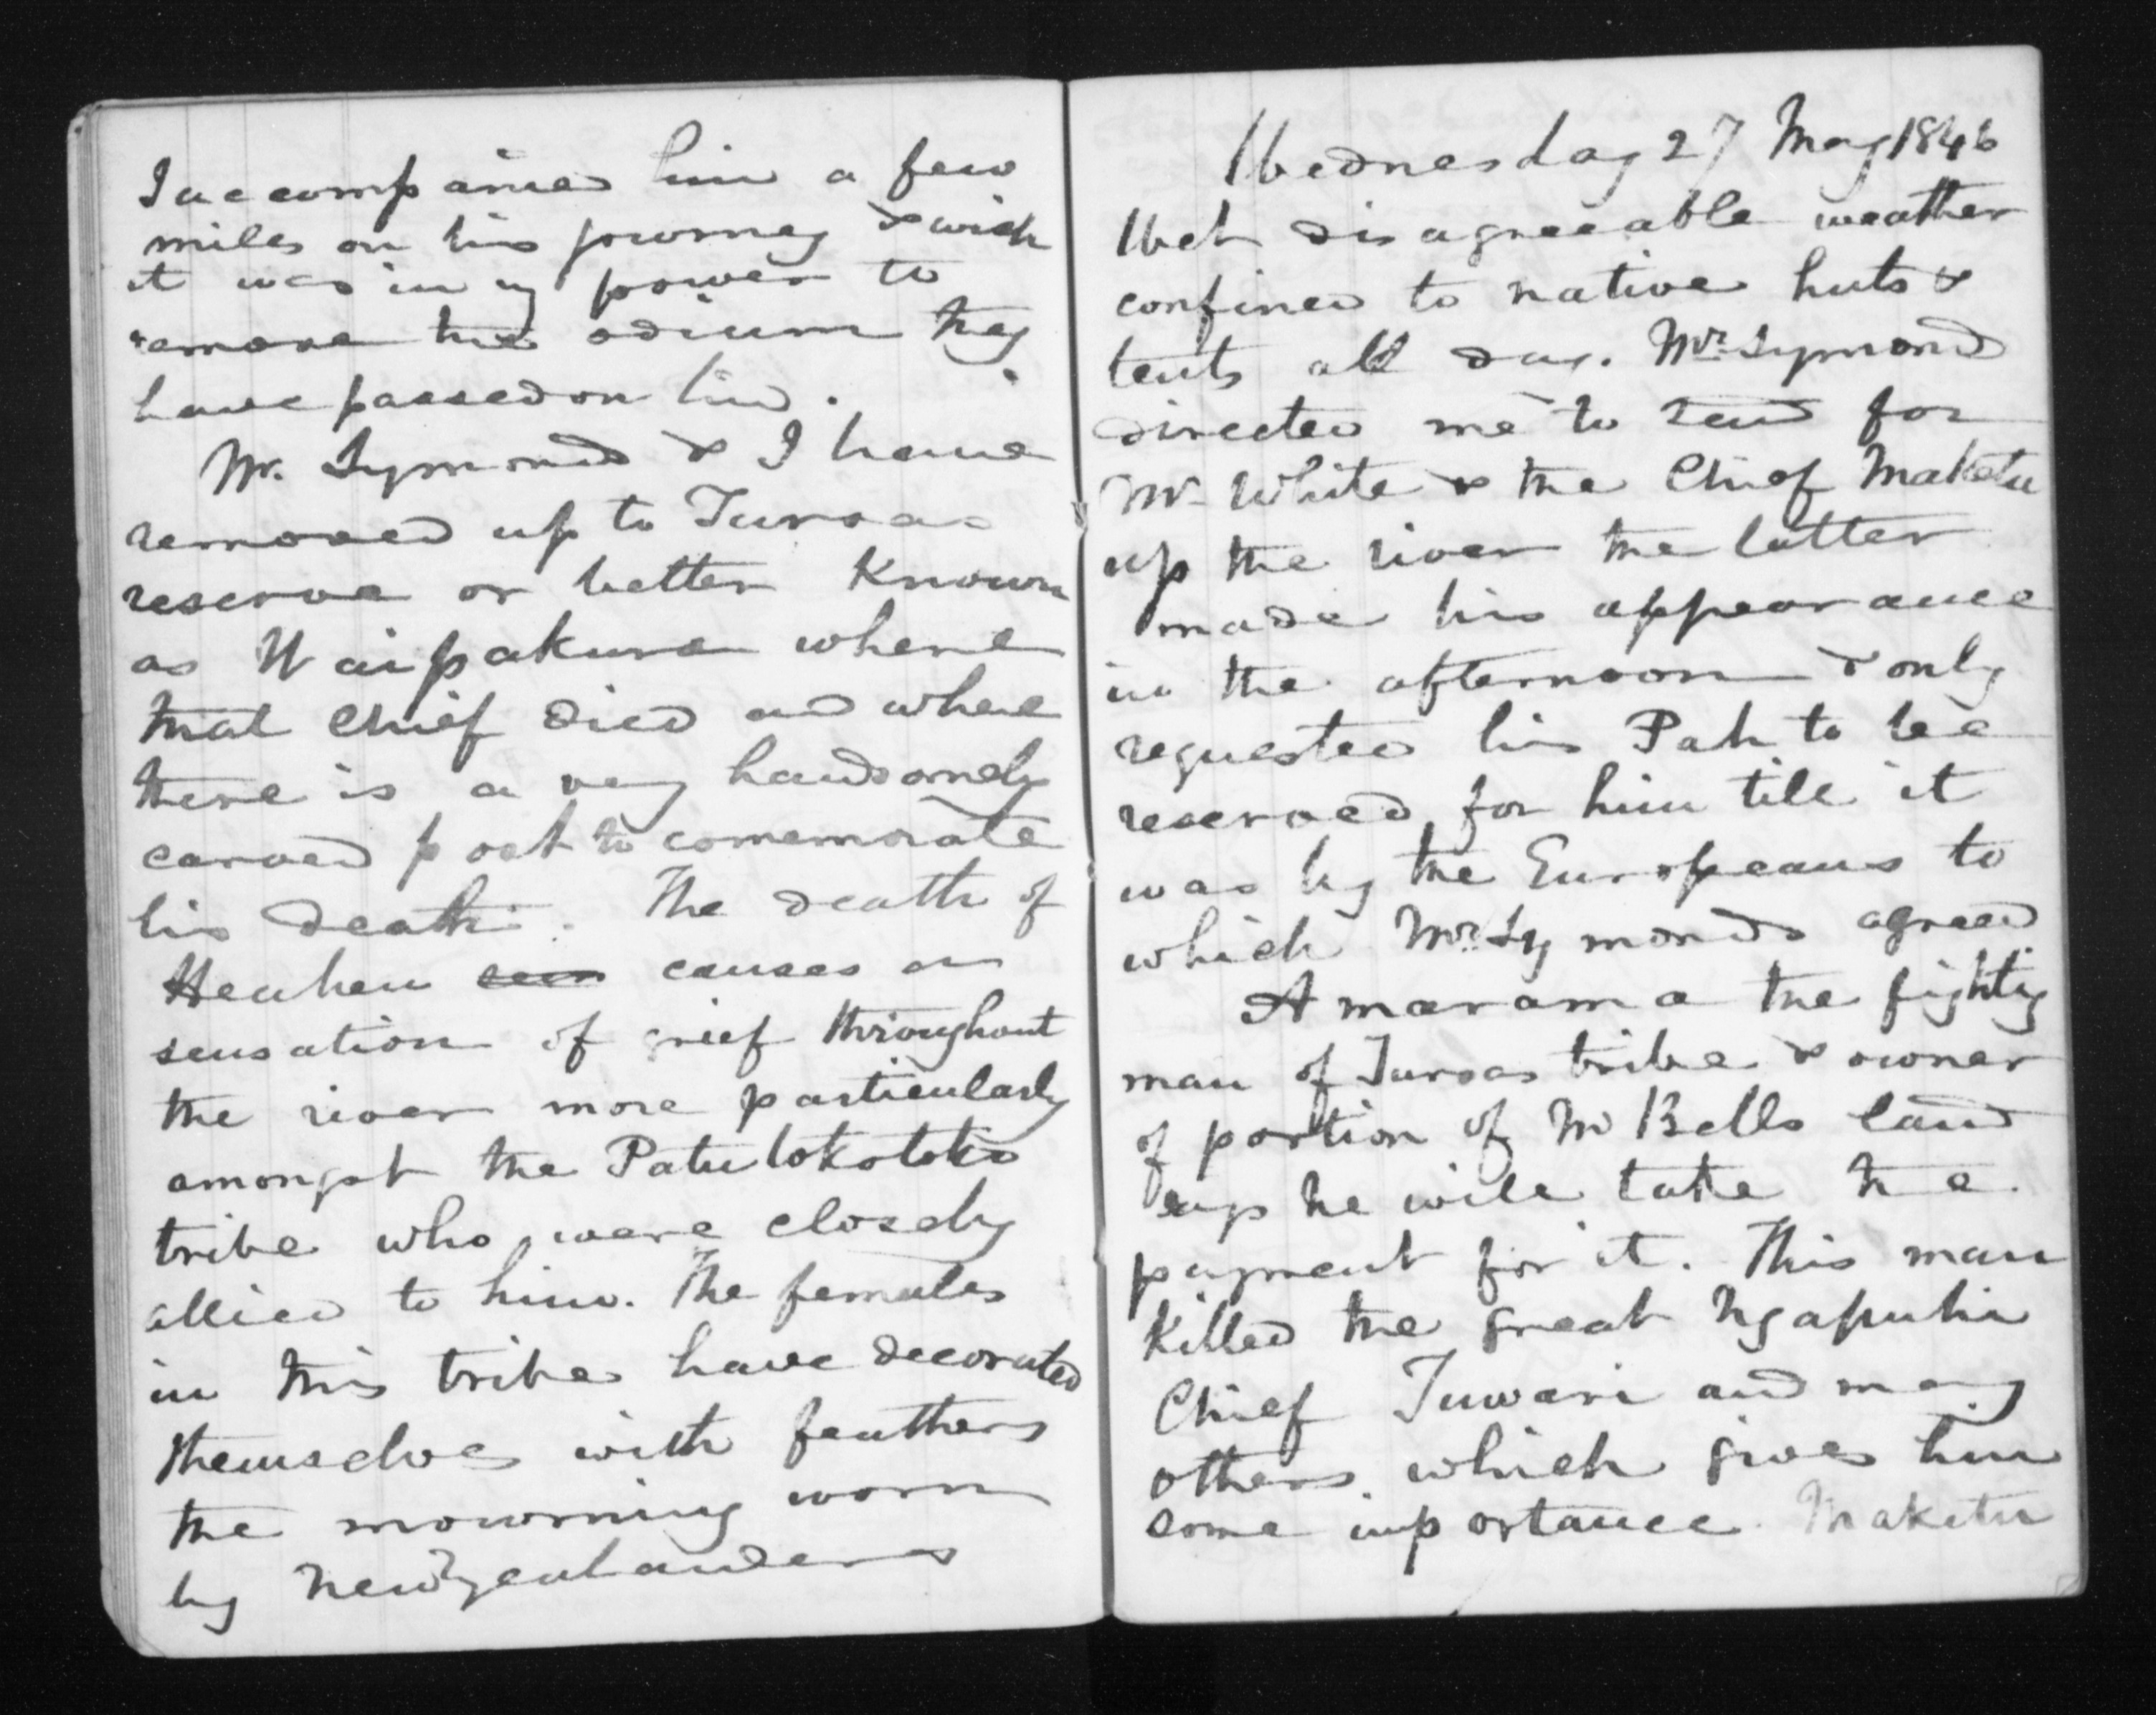 I accompanied him a few
miles on his journey & wish
it was in my power to
remove the odium they
have passed on him.
Mr. Symonds & I have
removed up to Turoas
reserve or better known
as Waipakura where
that Chief died and where
there is a very handsomely
carved post to comemorate
his death. The death of
Heuheu causes a
sensation of grief throughout
the river more particularly
amongst the Patutokotoko
tribe who were closely
allied to him. The females
in this tribe have decorated
themselves with feathers
the mourning worn
by New Zealanders
Wednesday 27 May 1846
Wet disagreeable weather
confined to native huts &
tents all day. Mr. Symonds
directed me to send for
Mr. White & the Chief Maketu
up the river the latter
made his appearance
in the afternoon & only
requested his Pah to be
reserved for him till it
was by the Europeans to
which Mr. Symonds agreed
Amarama the fighting
man of Turoas tribe & owner
of portion of Mr Bells land
says he will take the
payment for it. This man
killed the great Ngapuhi
Chief Tuwari and many
others which gives him
some importance. Maketu